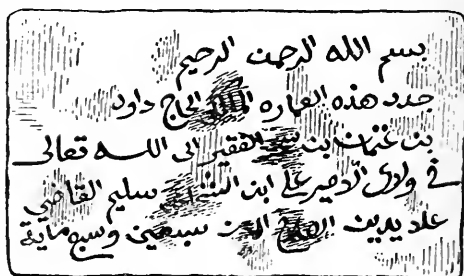 بسم الله الرحمن الرحيم
جدد هذه العماره الحاج داود
بن عثمان ابن الفقير الى الله تعالى
في ولاى الامير على ابن سليم القاضي
على يدين سبعين وسبع مايه